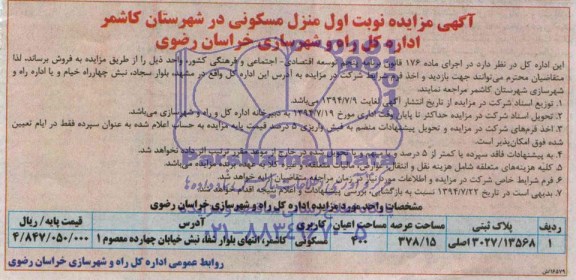 آگهی مزایده نوبت اول منزل مسکونی در شهرستان کاشمر
اداره کل راه و شهرسازی خراسان رضوی
این اداره کل در نظر دارد در اجرای ماده ۱۷۶ قانون برنامه پنجم توسعه اقتصادی - اجتماعی و فرهنگی کشور، واحد ذیل را از طریق مزایده به فروش برساند، لذا
متقاضیان محترم می‌توانند جهت بازدید و اخذ فرم شرایط شرکت در مزایده به آدرس این اداره کل واقع در مشهد، بلوار سجاد، نبش چهارراه خیام و یا اداره راه و
شهرسازی شهرستان کاشمر مراجعه نمایند.
۱. توزیع اسناد شرکت در مزایده از تاریخ انتشار آگهی لغایت ۱۳۹۴/۷/۹ می‌باشد.
۲. تحویل اسناد شرکت در مزایده حداکثر تا پایان وقت اداری مورخ ۱۳۹۴/۷/۱۹ به دبیرخانه اداره کل راه و شهرسازی می‌باشد.
۳. اخذ فرم‌های شرکت در مزایده و تحویل پیشنهادات منضم به فیش واریزی ۵ درصد قیمت پایه مزایده به حساب اعلام شده به عنوان سپرده فقط در ایام تعیین
شده فوق امکان‌پذیر است.
۴. به پیشنهادات فاقد سپرده یا کمتر از ۵ درصد و یا و تحویل شده در خارج از ترتیب اثر داده نخواهد شد.
۵. کلیه هزینه‌های متعلقه شامل هزینه نقل و انتقال برنده مزایده می‌باشد.
۶. فرم شرایط خاص شرکت در مزایده و اطلاعات مورد نیاز در زمان مراجعه متقاضیان ارائه خواهد شد.
۷. بدیهی است در تاریخ ۱۳۹۴/۷/۲۲ نسبت به بازگشایی، بررسی پیشنهادات و اعلام نتیجه اقدام خواهد شد.
مشخصات واحد مورد مزایده اداره کل راه و شهرسازی خراسان رضوی
ردیف پلاک ثبتی مساحت عرصه مساحت اعیان کاربری آدرس قیمت پایه / ریال
۱ ۳۰۲۷/۱۳۵۶۸ اصلی ۳۷۸/۱۵ ۴۰۰ مسکونی کاشمر، انتهای بلوار شفا، نبش خیابان چهارده معصوم ۱ ۴/۸۴۷/۰۵۰/۰۰۰
روابط عمومی اداره کل راه و شهرسازی خراسان رضوی
ParsNamadData
۰۲۱-۸۸۳۴۹۶۷۰-۵